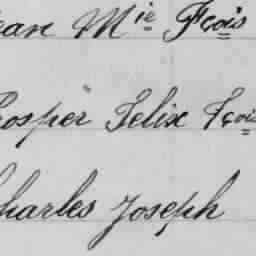 ean Mie Fçois
rosper Felix Fçois
harles Joseph